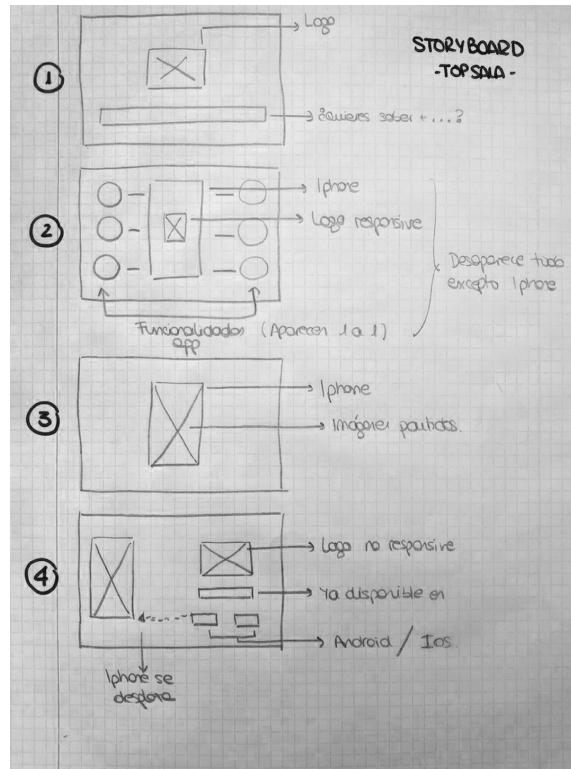 STORYBOARD
-TOPSALA-
1
Logo
¿Quieres saber + ...?
2
Iphone
Logo responsive
Desaparece todo
excepto Iphone
Funcionalidades (Aparecen 1 a 1)
app
3
Iphone
Imágenes partidos.
4
Logo no responsive
Ya disponible en
Android / Ios.
Iphone se
desplaza